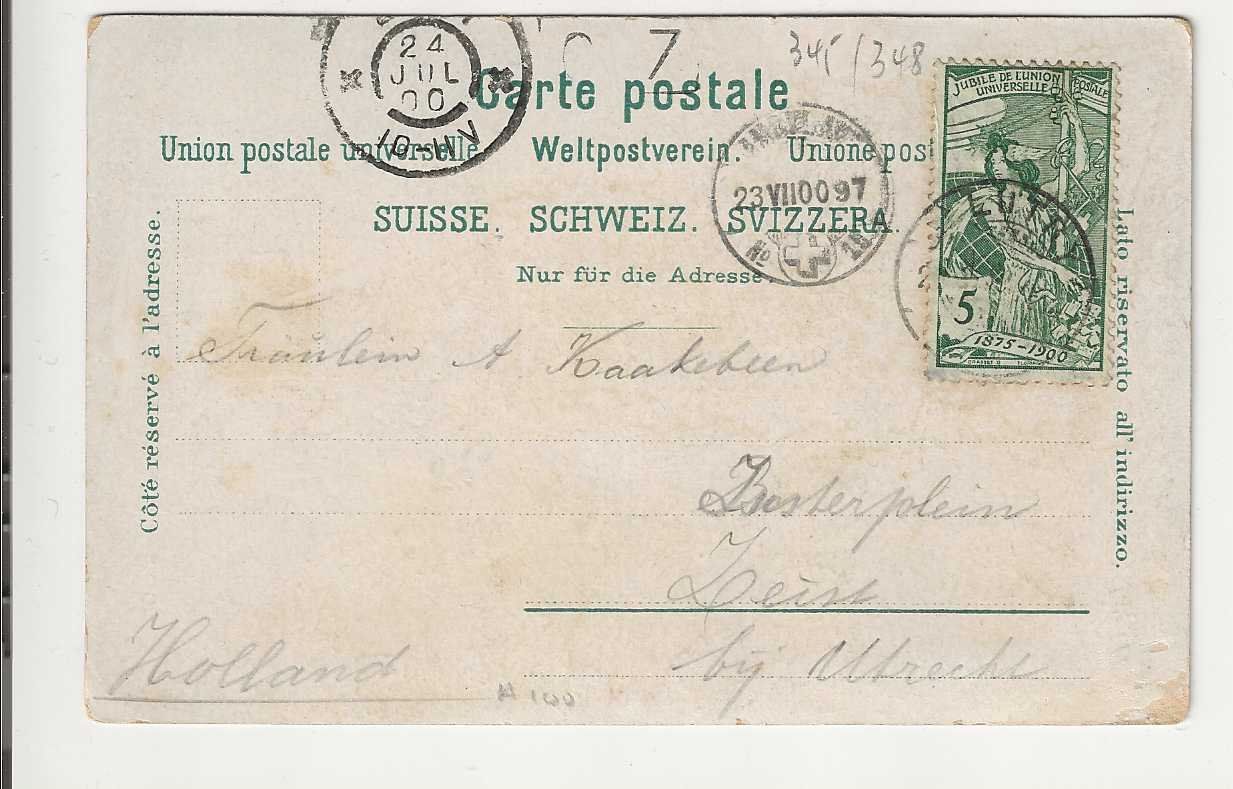 24
JUL
00
10-11V
Z
345/348
Carte postale
JUBILE DE L'UNION POSTALE
UNIVERSELLE
Union postale universelle. Weltpostverein. Unione pos
AMBULANT
23 VII 00 97
No
SUISSE. SCHWEIZ. SVIZZERA.
LUTRY
Nur für die Adresse.
5
1875-1900
GRASSET
Côté réservé à l'adresse.
Lato riservato all' indirizzo.
Fräulein A Kaakebeen
Zeist
bij Utrecht
Holland
100